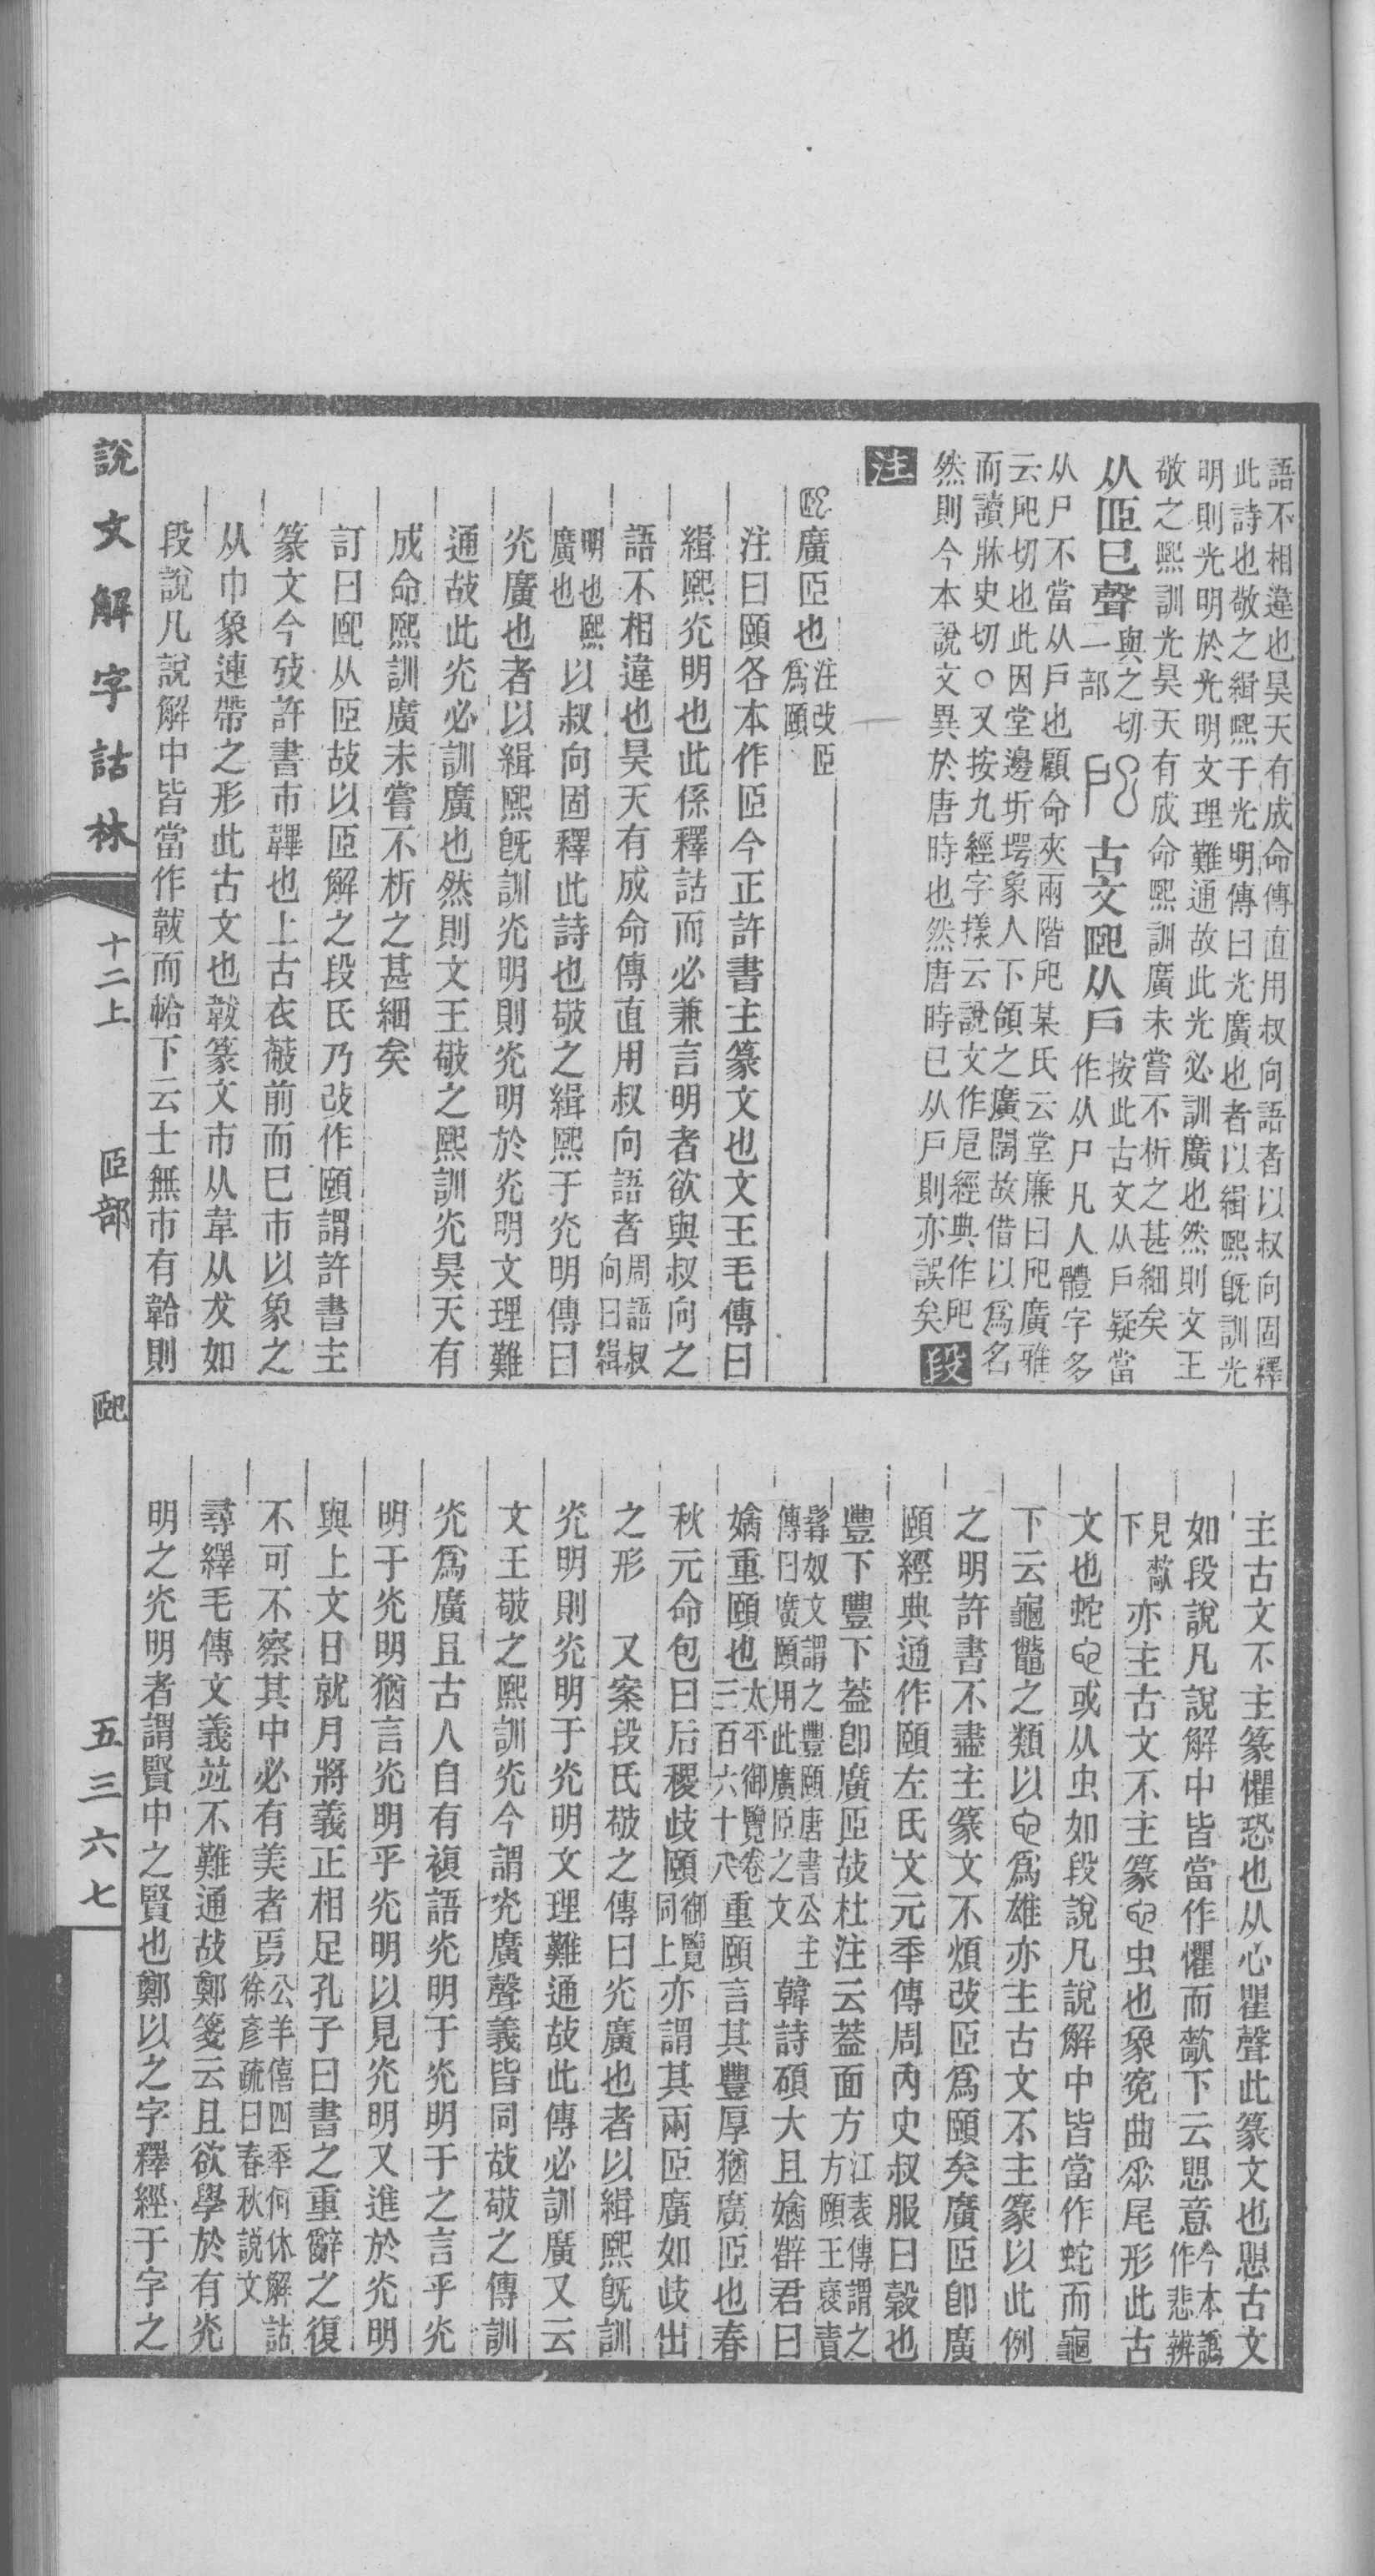 語不相違也昊天有成命傳直用叔向語者以叔向固釋
此詩也敬之緝熙于光明傳曰光廣也者以緝熙旣訓光
明則光明於光明文理難通故此光必訓廣也然則文王
敬之熙訓光昊天有成命熙訓廣未嘗不析之甚細矣
从𦣞巳聲
與之切
一部
古文𦣱从戶
按此古文从戶疑當
作从尸凡人體字多
从尸不當从戶也顧命夾兩階戺某氏云堂廉曰戺廣雅
云戺切也此因堂邊圻堮象人下頷之廣闊故借以爲名
而讀牀史切○又按九經字㨾云說文作戹經典作戺
然則今本說文異於唐時也然唐時已从戶則亦誤矣
段
注
廣𦣞也
注改𦣞
爲頤
注曰頤各本作𦣞今正許書主篆文也文王毛傳曰
緝熙光明也此係釋詁而必兼言明者欲與叔向之
語不相違也昊天有成命傳直用叔向語者
周語叔
向曰緝
明也熙
廣也
以叔向固釋此詩也敬之緝熙于光明傳曰
光廣也者以緝熙旣訓光明則光明於光明文理難
通故此光必訓廣也然則文王敬之熙訓光昊天有
成命熙訓廣未嘗不析之甚細矣
訂曰𦣱从𦣞故以𦣞解之段氏乃改作頤謂許書主
篆文今攷許書巿韠也上古衣蔽前而已巿以象之
从巾象連帶之形此古文也韍篆文巿从韋从犮如
段說凡說解中皆當作韍而帢下云士無巿有韐則
主古文不主篆懼恐也从心瞿聲此篆文也愳古文
如段說凡說解中皆當作懼而歗下云愳意
今本譌
作悲辨
見歗
下
亦主古文不主篆它虫也象冤曲𠂹尾形此古
文也蛇它或从虫如段說凡說解中皆當作蛇而龜
下云龜鼈之類以它爲雄亦主古文不主篆以此例
之明許書不盡主篆文不煩改𦣞爲頤矣廣𦣞卽廣
頤經典通作頤左氏文元秊傳周內史叔服曰穀也
豐下豐下葢卽廣𦣞故杜注云葢面方
江表傳謂之
方頤王褒責
髥奴文謂之豐頤唐書公主
傳曰廣頤用此廣𦣞之文
韓詩碩大且㜝薛君曰
㜝重頤也
太平御覽卷
三百六十八
重頤言其豐厚猶廣𦣞也春
秋元命包曰后稷歧頤
御覽
同上
亦謂其兩𦣞廣如歧出
之形　又案段氏敬之傳曰光廣也者以緝熙旣訓
光明則光明于光明文理難通故此傳必訓廣又云
文王敬之熙訓光今謂光廣聲義皆同故敬之傳訓
光爲廣且古人自有複語光明于光明于之言乎光
明于光明猶言光明乎光明以見光明又進於光明
與上文日就月將義正相足孔子曰書之重辭之復
不可不察其中必有美者焉
公羊僖四秊何休解詁
徐彥疏曰春秋說文
尋繹毛傳文義竝不難通故鄭箋云且欲學於有光
明之光明者謂賢中之賢也鄭以之字釋經于字之
說文解字詁林
十二上
𦣞部
𦣱
五三六七